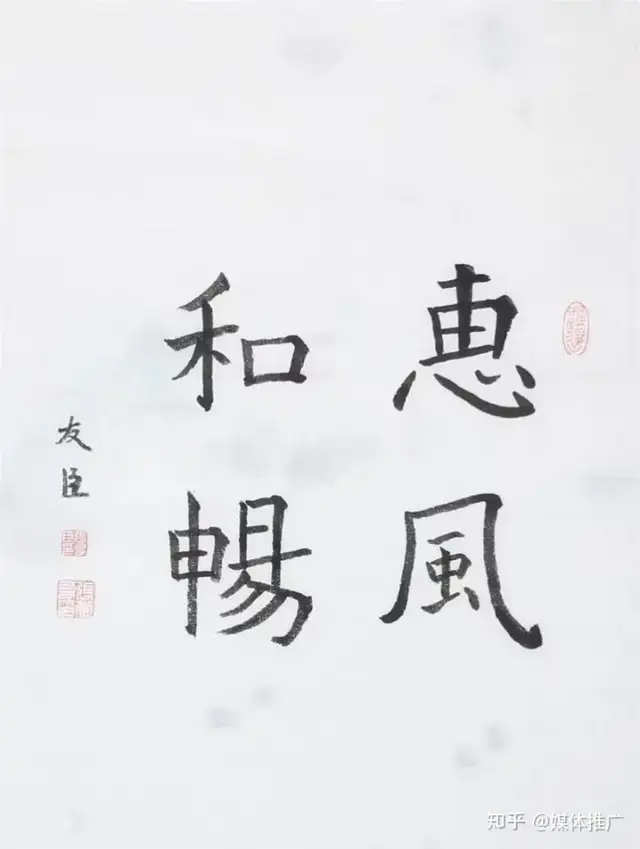 惠風
和暢
友臣
知乎 @媒体推广